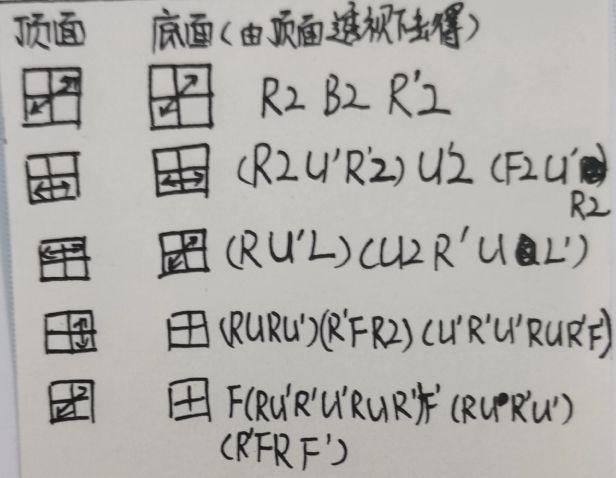 顶面 底面(由顶面透视下去得)
R2 B2 R'2
(R2U'R'2) U'2 (F2U'
R2
(RU'L)(U2R'UL')
(RURU')(R'FR2)(U'R'U'RUR'F)
F(RU'R'U'RUR')F'(RUR'U')
(R'FRF')